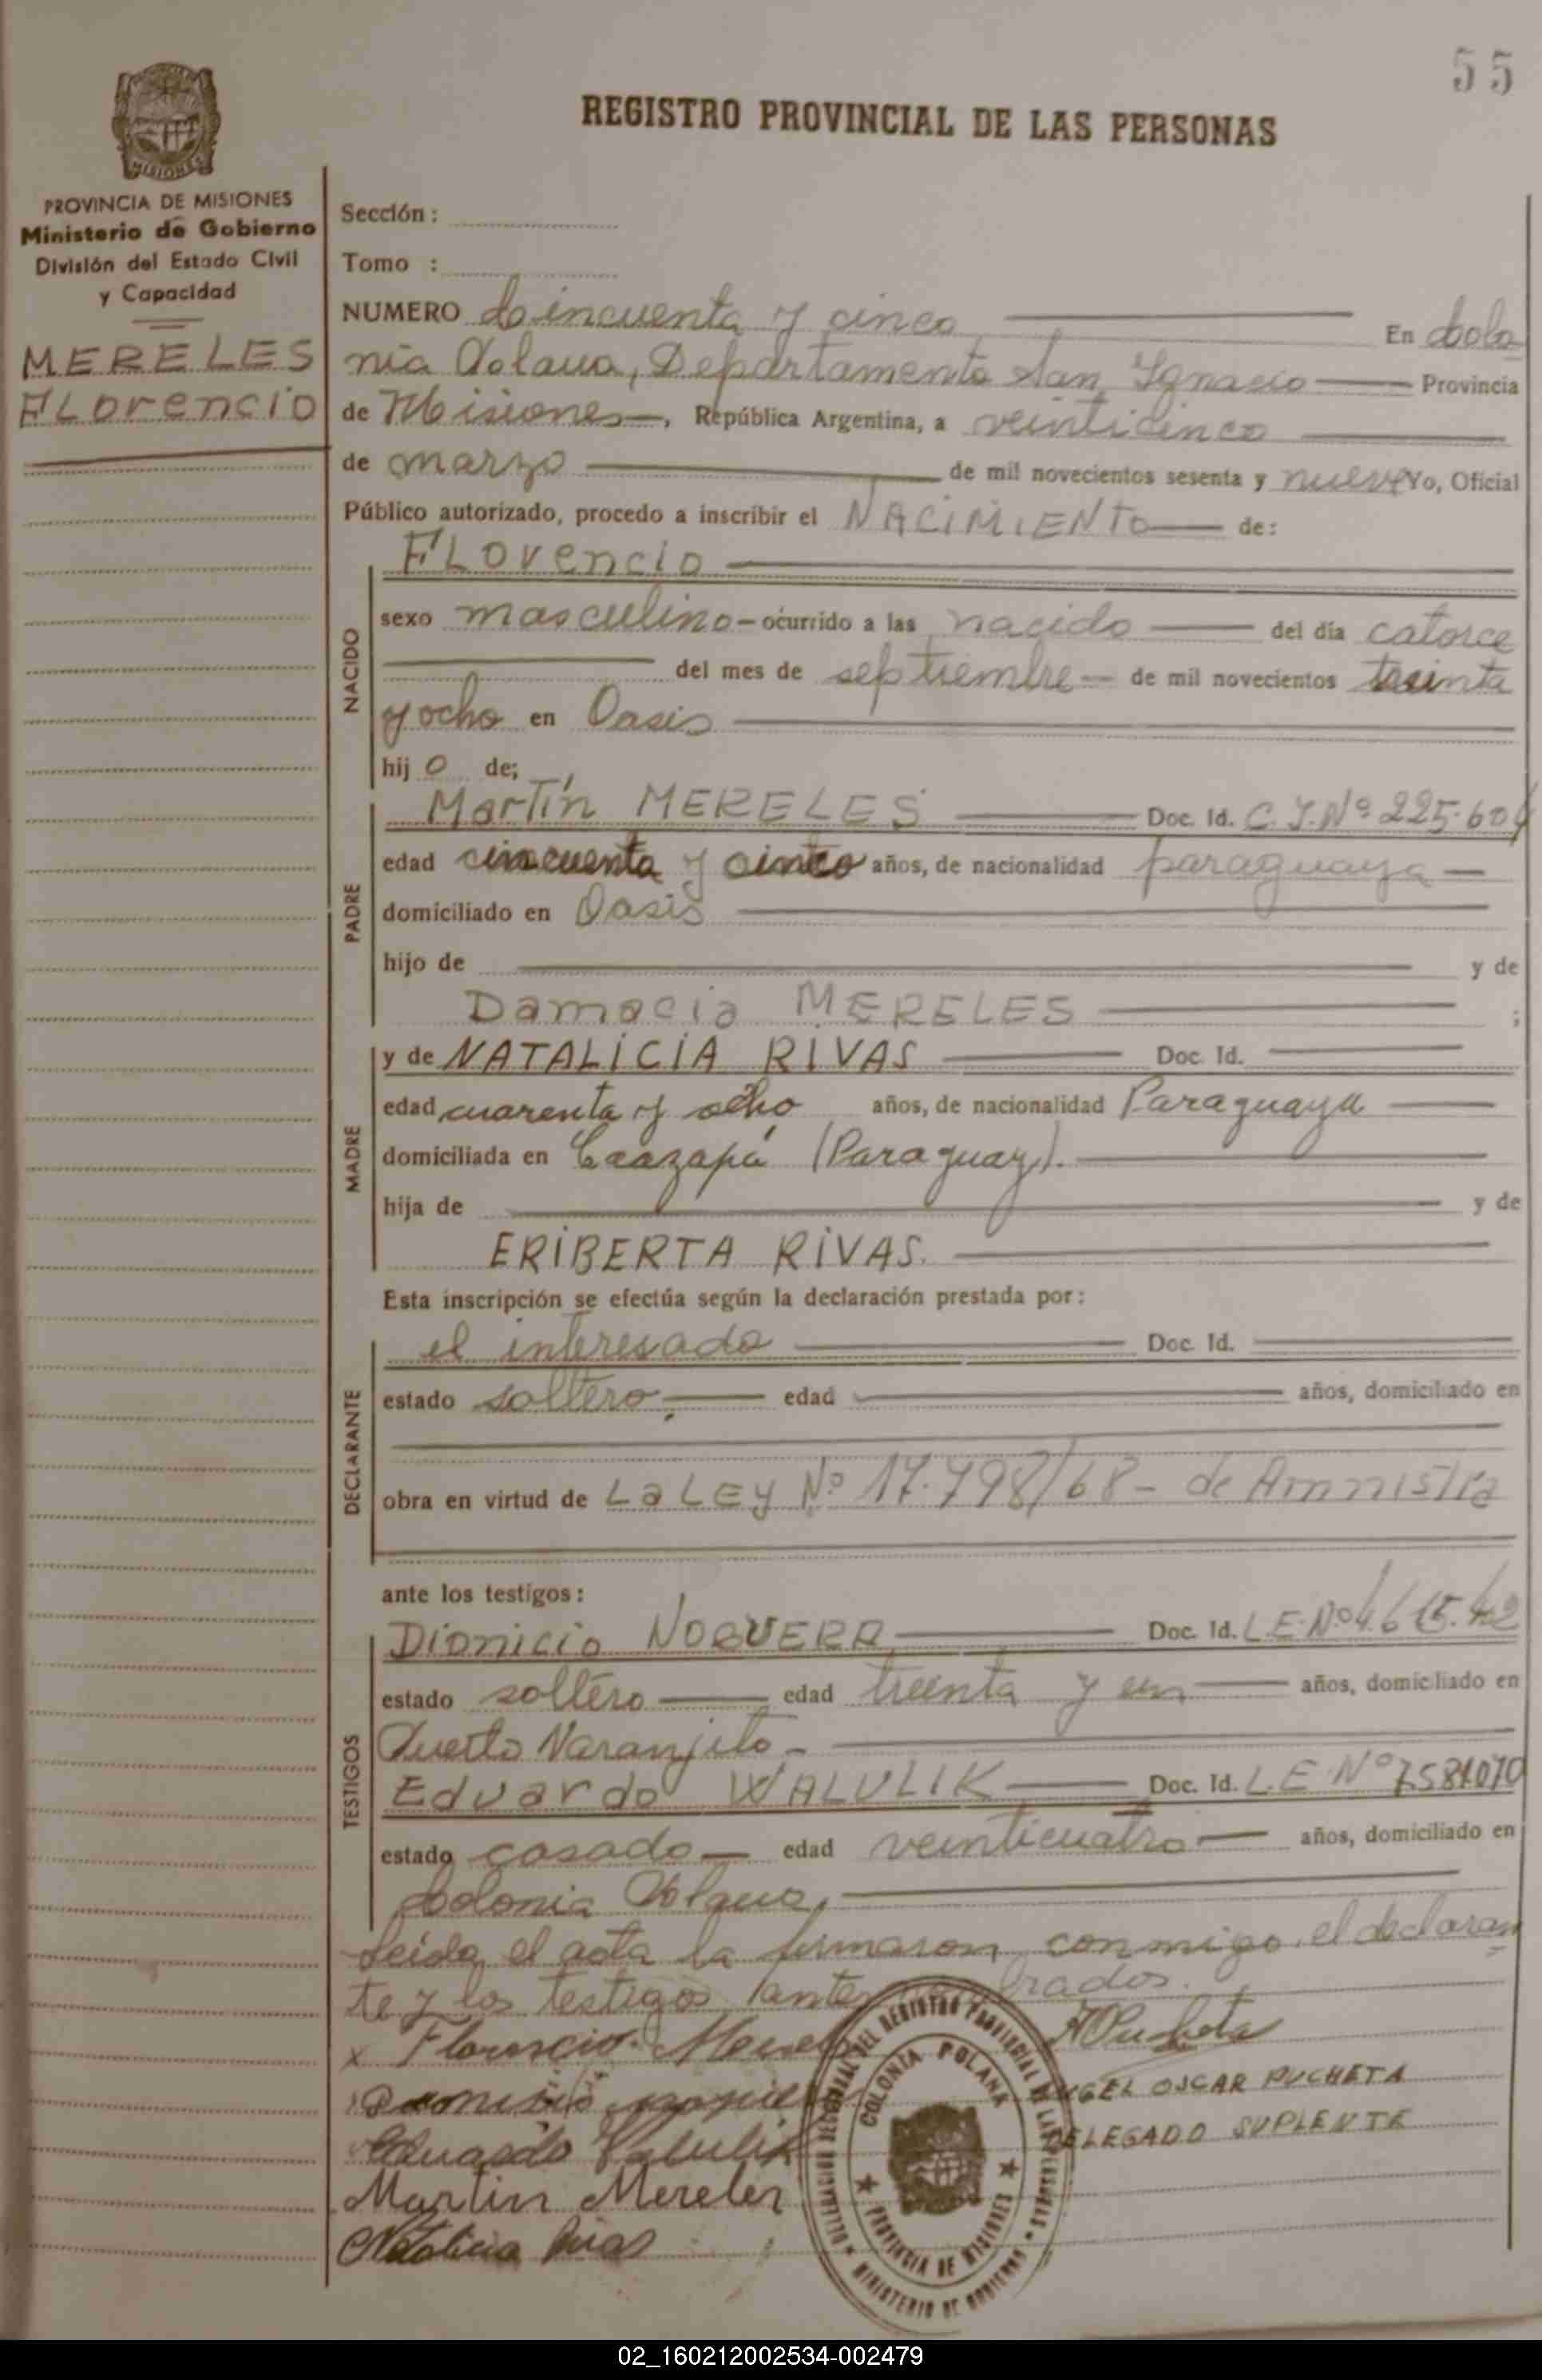 55
REGISTRO PROVINCIAL DE LAS PERSONAS
MISIONES
PROVINCIA DE MISIONES
Ministerio de Gobierno
División del Estado Civil
y Capacidad
MERELES
FLorencio
Sección :
Tomo :
NUMERO Cincuenta y cinco En Colo
nia Polana, Departamento San Ignacio Provincia
de Misiones, República Argentina, a veinticinco
de marzo de mil novecientos sesenta y nueve Yo, Oficial
Público autorizado, procedo a inscribir el NACIMIENTO de:
NACIDO
FLorencio
sexo masculino - ocurrido a las nacido del día catorce
del mes de septiembre de mil novecientos treinta
y ocho en Oasis
hij o de;
PADRE
Martín MERELES Doc. Id. C.I. Nº 225.604
edad cincuenta y cinco años, de nacionalidad paraguaya
domiciliado en Oasis
hijo de y de
Damacia MERELES ;
MADRE
y de NATALICIA RIVAS Doc. Id.
edad cuarenta y ocho años, de nacionalidad Paraguaya
domiciliada en Caazapá (Paraguay).
hija de y de
ERIBERTA RIVAS.
Esta inscripción se efectúa según la declaración prestada por:
DECLARANTE
el interesado Doc. Id.
estado soltero, edad años, domiciliado en
obra en virtud de La LEY Nº 17.798/68 - de Amnistia
ante los testigos:
TESTIGOS
Dionicio NOGUERA Doc. Id. L.E. Nº
estado soltero edad treinta y un años, domiciliado en
Puerto Naranjito -
Eduardo WALULIK Doc. Id. L.E Nº 7581070
estado casado edad veinticuatro años, domiciliado en
Colonia Polana,
Leída el acta la firmaron conmigo el declaran
te y los testigos antes
Florencio Mereles
ANGEL OSCAR PUCHETA
DELEGADO SUPLENTE
Eduardo Walulik
Martin Mereles
Natalicia Rivas
DELEGACION SECCIONAL DEL REGISTRO PROVINCIAL DE LAS PERSONAS
COLONIA POLANA
PROVINCIA DE MISIONES
MINISTERIO DE GOBIERNO
02_160212002534-002479